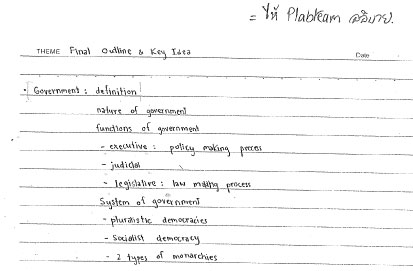 = ให้ Plabteam อธิบาย.
THEME Final Outline & Key Idea Date
• Government : definition
nature of government
functions of government
- executive : policy making process
- judicial
- legislative : law making process
System of government
- pluralistic democracies
- Socialist democracy
- 2 types of monarchies